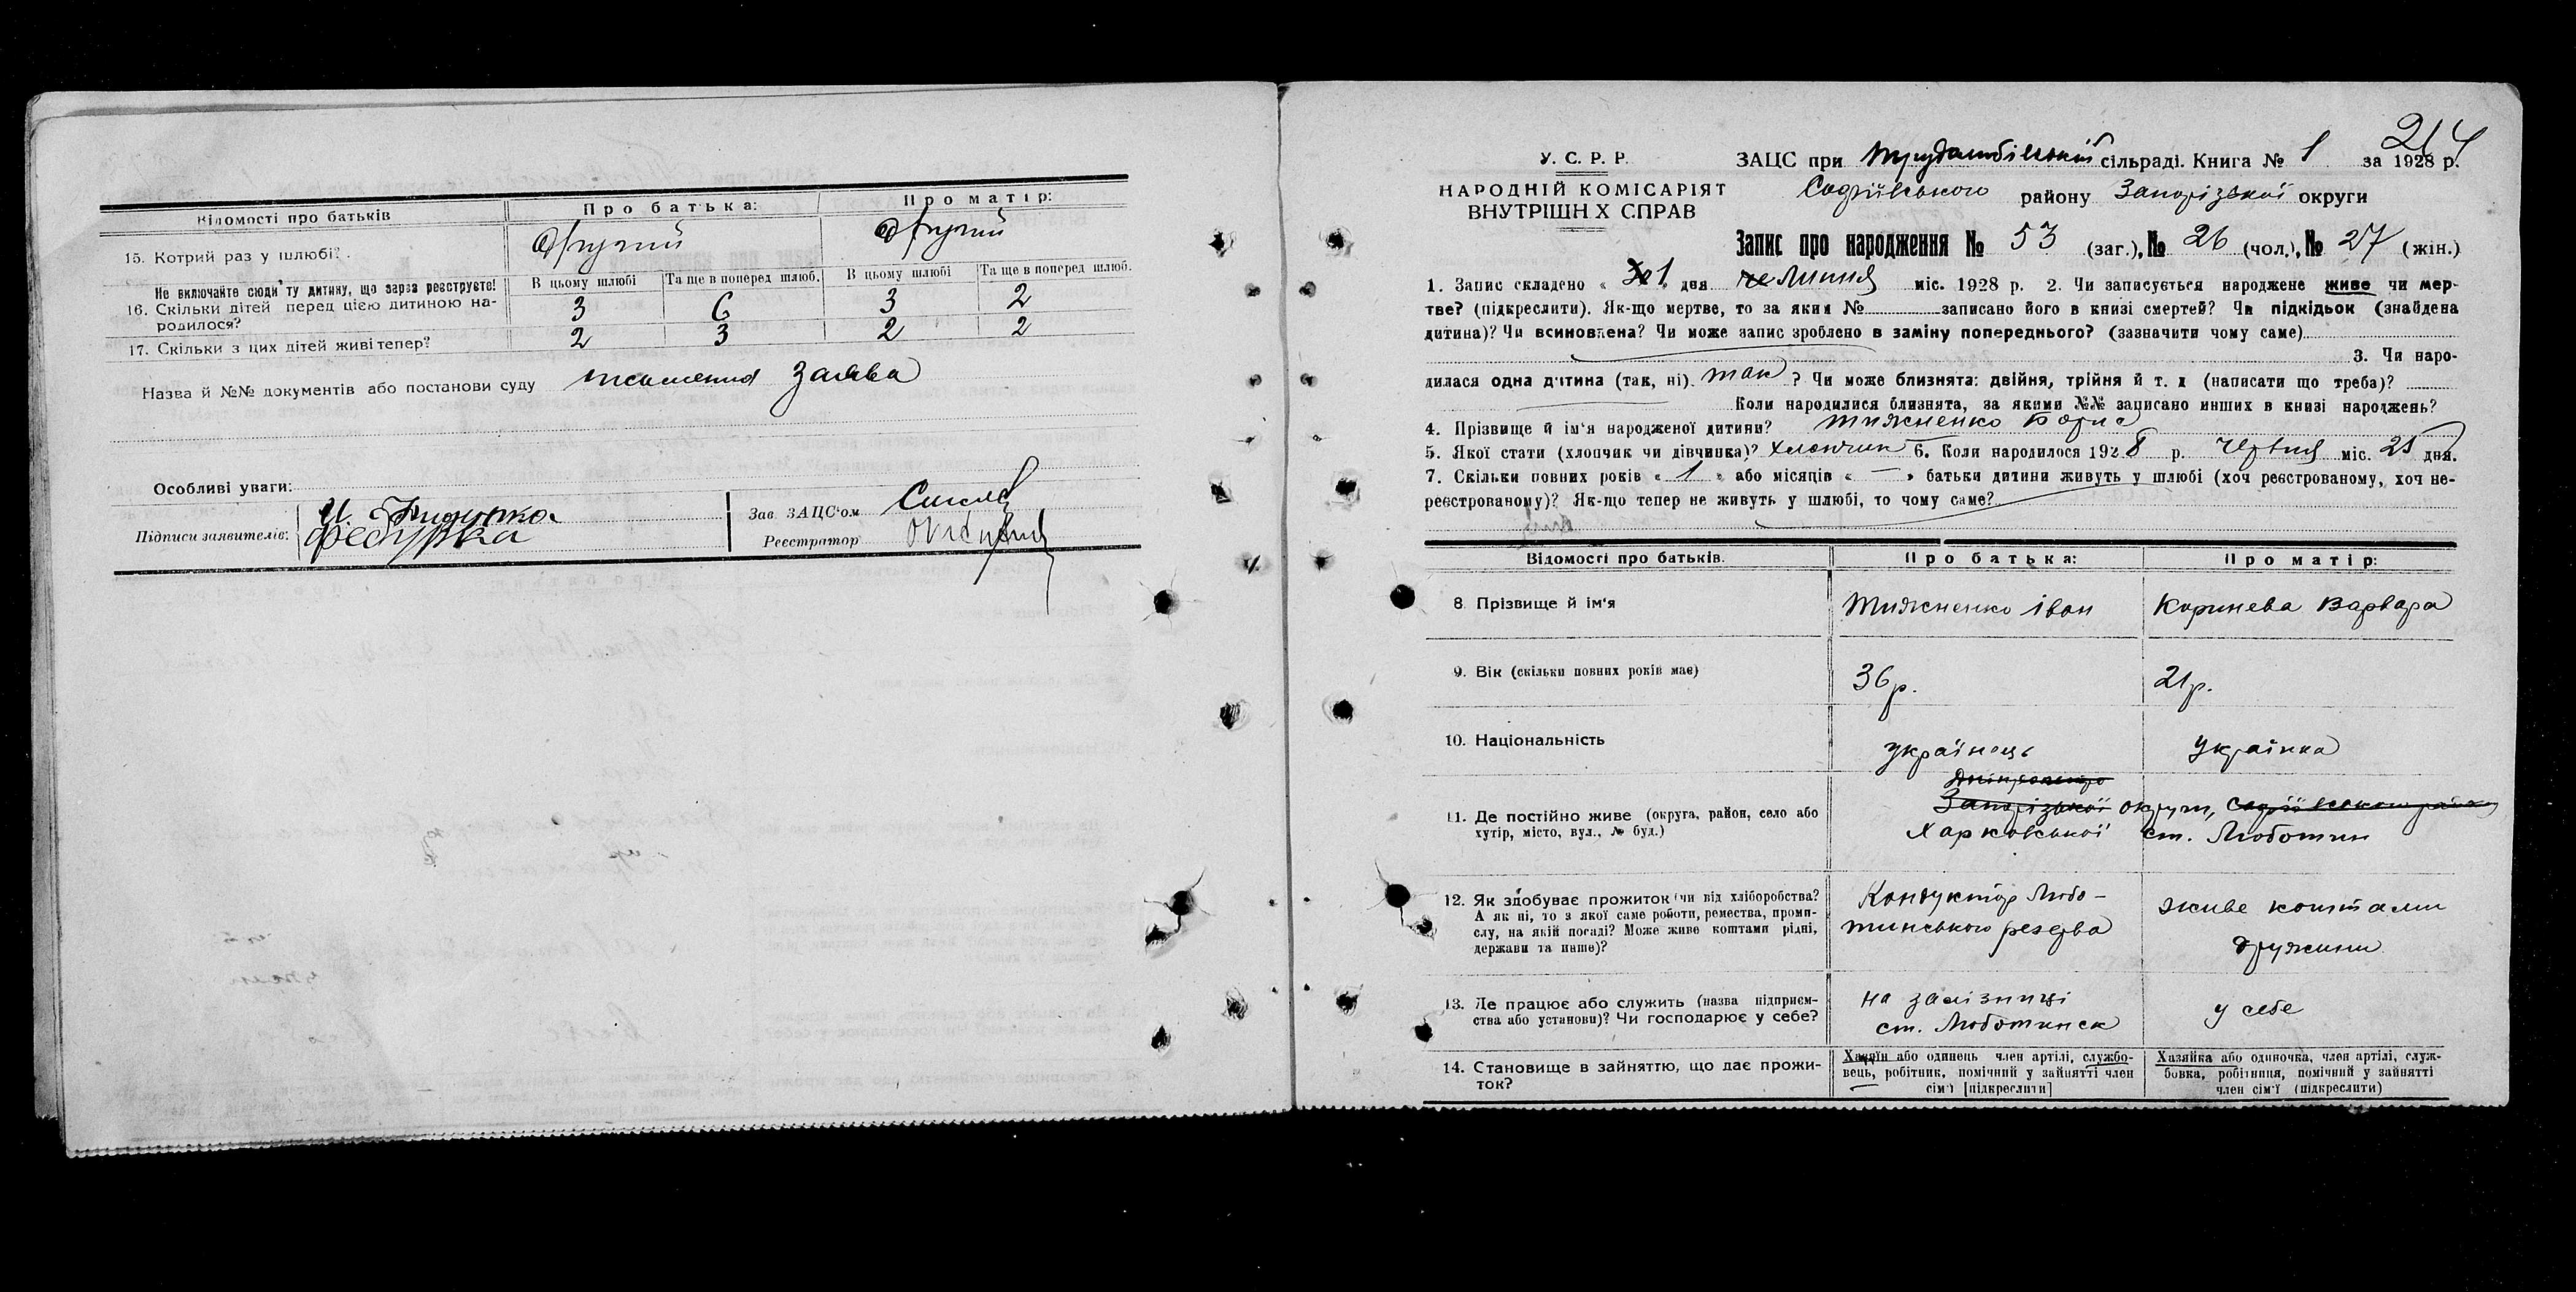 Відомості про батьків
Про батька:
Про матір:
15. Котрий раз у шлюбі?
другий
другий
Не включайте сюди ту дитину, що зараз реєструєте!
В цьому шлюбі
Та ще в поперед шлюб.
В цьому шлюбі
Та ще в поперед шлюб.
16. Скільки дітей перед цією дитиною на-
родилося?
3
6
3
2
17. Скільки з цих дітей живі тепер?
2
3
2
2
Назва й №№ документів або постанови суду
заява
Особливі уваги:
Підписи заявителів:
Зав. ЗАЦС'ом
Реєстратор
214
У. С. Р. Р.
НАРОДНІЙ КОМІСАРІЯТ
ВНУТРІШН Х СПРАВ
ЗАЦС при сільраді. Книга № 1 за 1928 р.
Софіївського району Запорізької округи
Запис про народження № 53 (заг.), № 26 (чол.), № 27 (жін.)
1. Запис складено « 1 » дня Липня міс. 1928 р. 2. Чи записується народжене живе чи мер-
тве? (підкреслити). Як-що мертве, то за яким № записано його в книзі смертей? Чи підкідьок (знайдена
дитина)? Чи всиновлена? Чи може запис зроблено в заміну попереднього? (зазначити чому саме)
3. Чи наро-
дилася одна дитина (так, ні) так ? Чи може близнята: двійня, трійня й т. д (написати що треба)?
Коли народилися близнята, за якими №№ записано инших в книзі народжень?
4. Прізвище й ім'я народженої дитини? Тияжненко Борис
5. Якої стати (хлопчик чи дівчинка)? хлопчик 6. Коли народилося 1928 р. Червня міс. 25 дня.
7. Скільки повних років « 1 » або місяців « — » батьки дитини живуть у шлюбі (хоч реєстрованому, хоч не-
реєстрованому)? Як-що тепер не живуть у шлюбі, то чому саме?
Відомості про батьків.
Про батька:
Про матір:
8. Прізвище й ім'я
Тияжненко Іван
Коринева Варвара
9. Вік (скільки повних років має)
36 р.
21 р.
10. Національність
українець
українка
11. Де постійно живе (округа, район, село або
хутір, місто, вул., № буд.)
Запорізької округи,
Харковської ст. Люботин
12. Як здобуває прожиток (чи від хліборобства?
А як ні, то з якої саме роботи, ремества, проми-
слу, на якій посаді? Може живе коштами рідні,
держави та инше)?
Кондуктор Любо-
тинського резерва
живе коштами
дружини
13. Де працює або служить (назва підприєм-
ства або установи)? Чи господарює у себе?
на залізниці
ст. Люботинск
у себе
14. Становище в зайняттю, що дає прожи-
ток?
Хазяїн або одинець член артілі, службо-
вець, робітник, помічний у зайнятті член
сім'ї [підкреслити]
Хазяйка або одиночка, член артілі, служ-
бовка, робітниця, помічний у зайнятті
член сім'ї (підкреслити)